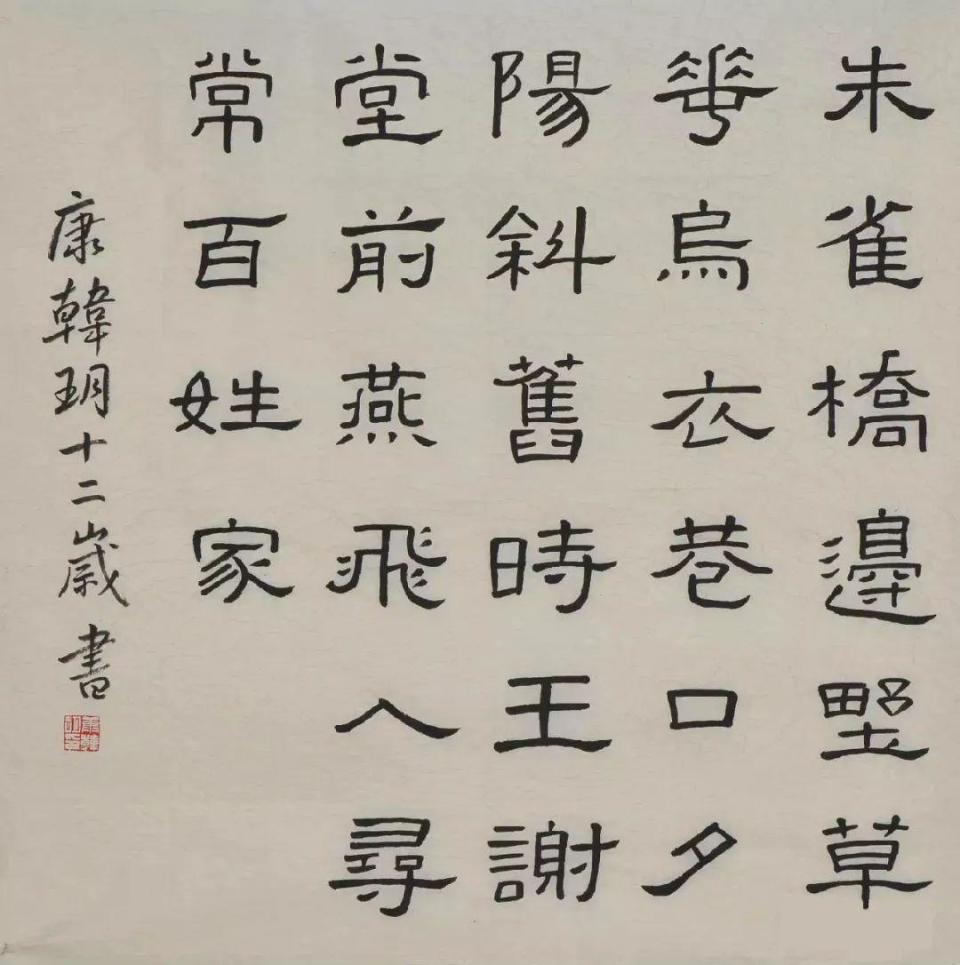 朱雀橋邊野草
華烏衣巷口夕
陽斜舊時王謝
堂前燕飛入尋
常百姓家
康韓玥十二歲書